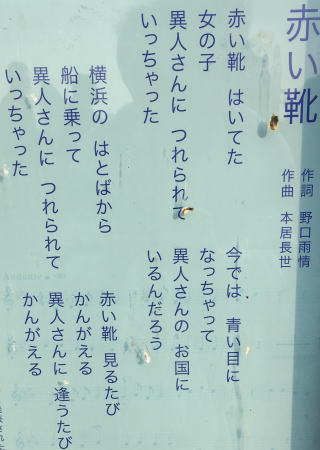 赤い靴
作詞 野口雨情
作曲 本居長世
赤い靴 はいてた
女の子
異人さんに つれられて
いっちゃった
横浜の はとばから
船に乗って
異人さんに つれられて
いっちゃった
今では 青い目に
なっちゃって
異人さんの お国に
いるんだろう
赤い靴 見るたび
かんがえる
異人さんに 逢うたび
かんがえる